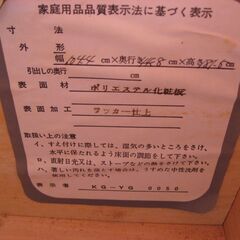 家庭用品品質表示法に基づく表示
寸法
外形
幅 cm×奥行 cm×高 cm
引出しの奥行 cm
表面材 ポリエステル化粧板
表面加工 ラッカー仕上
取扱い上の注意
イ、すえ付けに際しては、湿気の多いところをさけ、
水平に保たれるよう床面の調節をして下さい。
ロ、直射日光又は、ストーブなどの熱をさけて下さい。
ハ、著しい汚れを落して頂くときは、うすめた中性洗剤を
使用して下さい。
表示者 KG-YG 0050